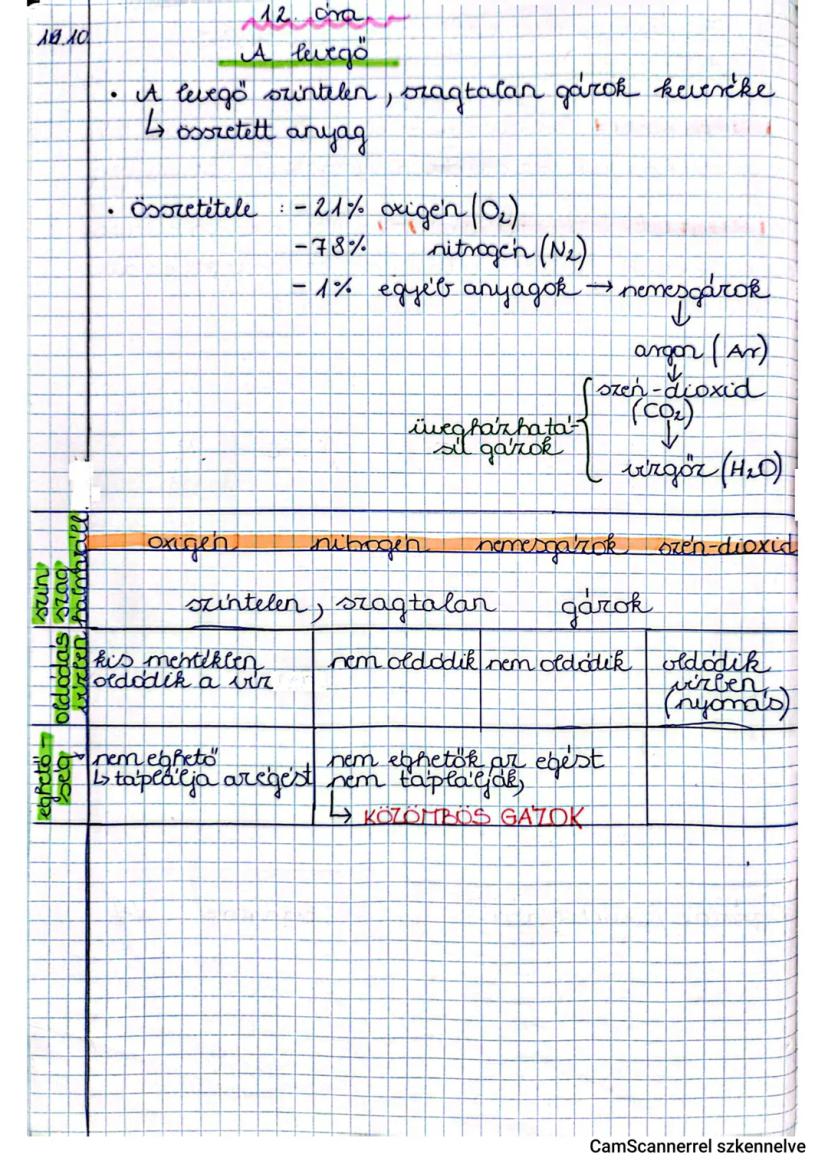 12. óra
10.10
A levegő
• A levegő színtelen, szagtalan gázok keveréke
↳ összetett anyag
• összetétele : - 21% oxigén (O₂)
- 78% nitrogén (N₂)
- 1% egyéb anyagok → nemesgázok
↓
argon (Ar)
↓
szén-dioxid
(CO₂)
üvegházhatá-
sú gázok
↓
vízgőz (H₂O)
oxigén nitrogén nemesgázok szén-dioxid
szín
szag
halmazáll.
színtelen, szagtalan gázok
oldódás
vízben
kis mértékben
oldódik a víz
nem oldódik
nem oldódik
oldódik
vízben
(nyomás)
éghető-
ség
nem éghető
↳ táplálja az égést
nem éghetők az égést
nem táplálják,
↳ KÖZÖMBÖS GÁZOK
CamScannerrel szkennelve